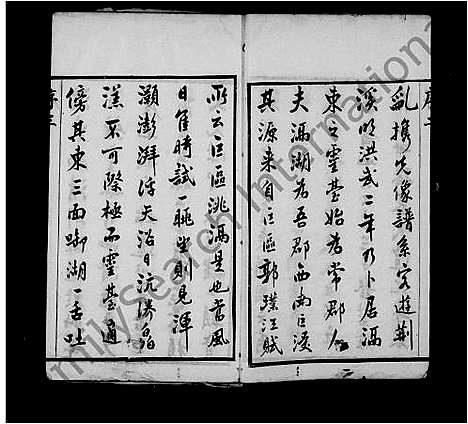 序二
亂攜先像譜系客遊荆
溪明洪武二年乃卜居滆
東之靈臺始為常郡人
夫滆湖者吾郡西南巨浸
其源來自巨區郭璞江賦
所云巨區洮滆是也當風
日隹時試一眺望則見渾
灝澎湃浮天沿日沆漭
漾不可際極而靈臺適
傍其東三面啣湖一舌吐
序三
FamilySearch Information